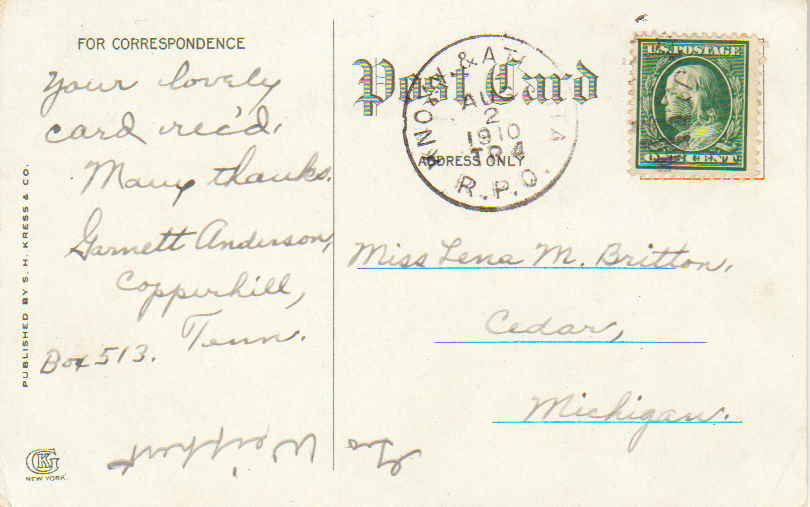 FOR CORRESPONDENCE
Your lovely
card rec'd.
Many thanks.
Garnett Anderson,
Copperhill,
Tenn.
Box 513.
PUBLISHED BY S. H. KRESS & CO.
NEW YORK.
Post Card
ADDRESS ONLY
AUG
2
1910
TR 4
R.P.O.
U.S. POSTAGE
ONE CENT
Miss Lena M. Britton,
Cedar,
Michigan.